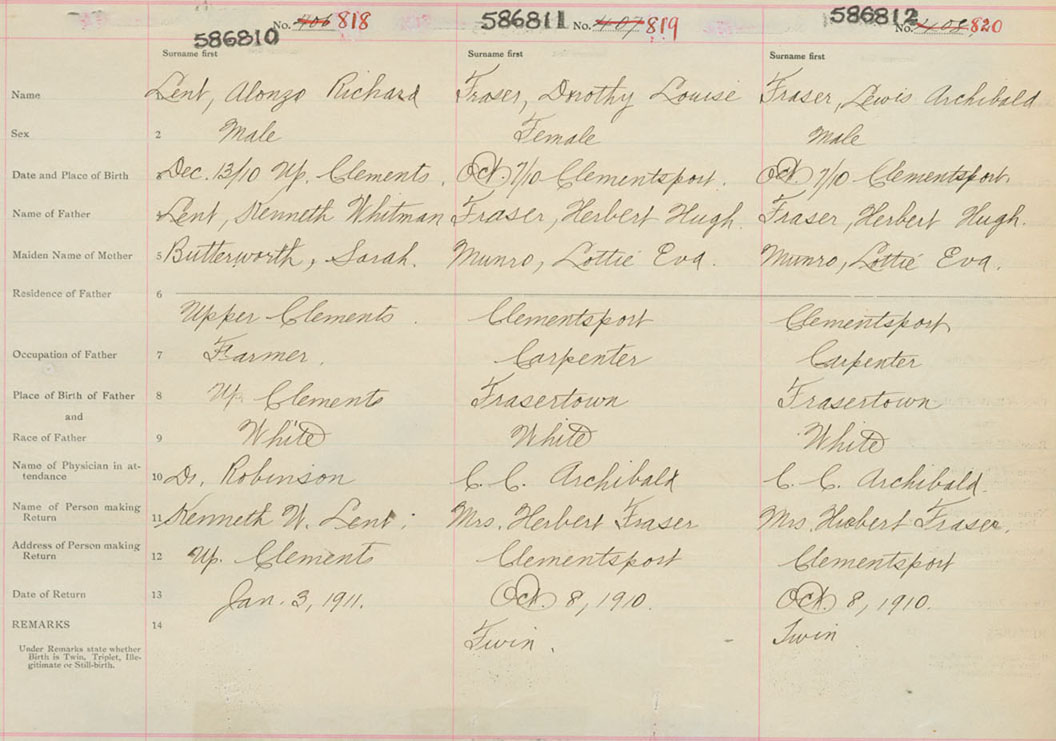 586810 No. 406 818 586811 No. 407 819 586812 No. 408 820
Surname first Surname first Surname first
Name Lent, Alonzo Richard Fraser, Dorothy Louise Fraser, Lewis Archibald
Sex 2 Male Female Male
Date and Place of Birth 3 Dec. 13/10 Up. Clements. Oct. 7/10 Clementsport. Oct. 7/10 Clementsport.
Name of Father Lent, Kenneth Whitman Fraser, Herbert Hugh. Fraser, Herbert Hugh.
Maiden Name of Mother 5 Butterworth, Sarah. Munro, Lottie Eva. Munro, Lottie Eva.
Residence of Father 6
Upper Clements. Clementsport Clementsport
Occupation of Father 7 Farmer. Carpenter Carpenter
Place of Birth of Father 8 Up. Clements Frasertown Frasertown
and
Race of Father 9 White White White
Name of Physician in at-
tendance 10 Dr. Robinson C. C. Archibald C. C. Archibald.
Name of Person making
Return 11 Kenneth W. Lent. Mrs. Herbert Fraser Mrs. Herbert Fraser.
Address of Person making
Return 12 Up. Clements Clementsport Clementsport
Date of Return 13 Jan. 3, 1911. Oct. 8, 1910. Oct. 8, 1910.
REMARKS 14 Twin. Twin
Under Remarks state whether
Birth is Twin, Triplet, Ille-
gitimate or Still-birth.